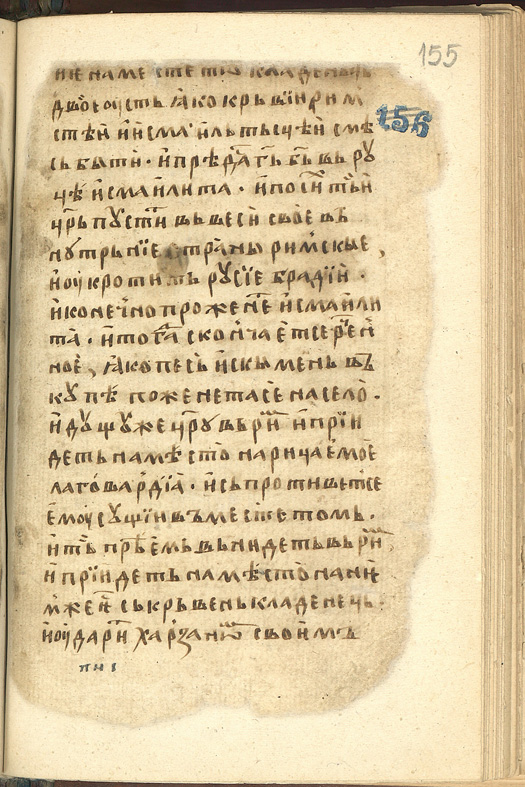 155
156
ніе на месте то кладеньць
двоеоусть ꙗко крьвїи рим
стѣи и исмаиль тысѧчеи смѣ
сь быти · и прѣдасть бь вь рꙋ
чѣ исмаилита · и посем тьи
црь пꙋстить вь веси свое вь
нꙋтрьнїе страны римскые,
и оукротить рꙋсїе брадїи ·
и конечно прожене исмаили
та · и тогда скончаетсе реч҃
ное, ꙗко песь и скымень вь
кꙋпѣ поженета се на село ·
идꙋщꙋ же црꙋ вь рим и прїи
деть на мѣсто наричаемое
лаговардїа · и сь противетсе
емоу сꙋщїи вь месте томь ·
и ть прѣемь вьнидеть вь рим
и прїидеть на мѣсто на ни
мже е съкрьвень кладенець ·
и оударит харзаниѡ своимъ
пні